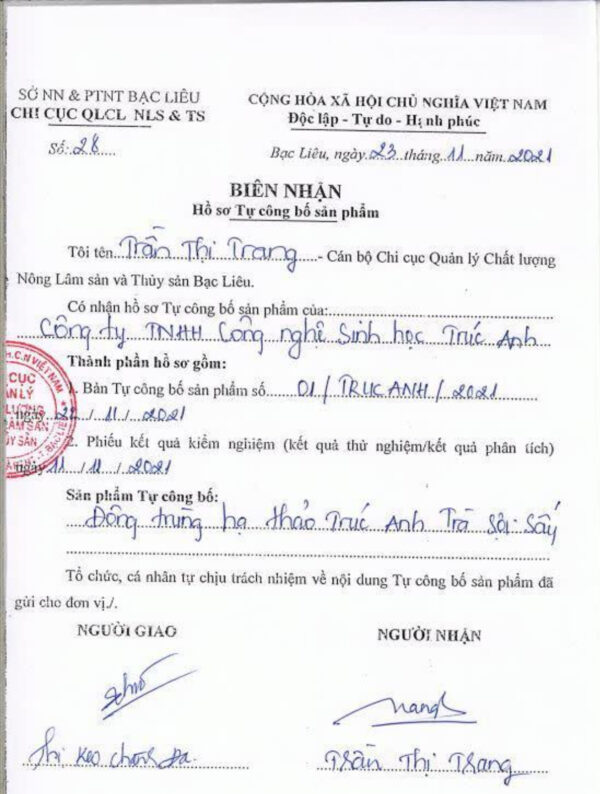 SỞ NN & PTNT BẠC LIÊU
CHI CỤC QLCL NLS & TS
Số: 28
CỘNG HÒA XÃ HỘI CHỦ NGHĨA VIỆT NAM
Độc lập - Tự do - Hạnh phúc
Bạc Liêu, ngày 23 tháng 11 năm 2021
BIÊN NHẬN
Hồ sơ Tự công bố sản phẩm
Tôi tên Trần Thị Trang - Cán bộ Chi cục Quản lý Chất lượng
Nông Lâm sản và Thủy sản Bạc Liêu.
Có nhận hồ sơ Tự công bố sản phẩm của:
Công ty TNHH Công nghệ Sinh học Trúc Anh
Thành phần hồ sơ gồm:
1. Bản Tự công bố sản phẩm số 01 / TRUC ANH / 2021
ngày 22 / 11 / 2021
2. Phiếu kết quả kiểm nghiệm (kết quả thử nghiệm/kết quả phân tích)
ngày 11 / 11 / 2021
Sản phẩm Tự công bố:
Đông trùng hạ thảo Trúc Anh Trà Sợi Sấy
Tổ chức, cá nhân tự chịu trách nhiệm về nội dung Tự công bố sản phẩm đã
gửi cho đơn vị./.
NGƯỜI GIAO
NGƯỜI NHẬN
Trang
Trần Thị Trang